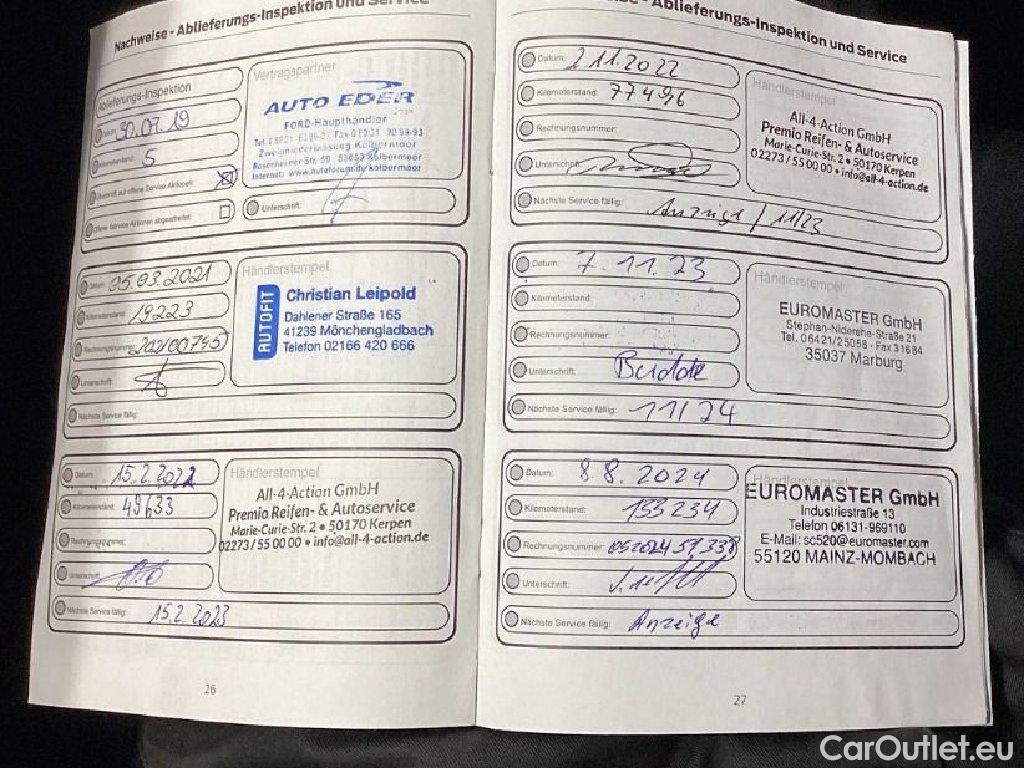 Nachweise - Ablieferungs-Inspektion und Service
Ablieferungs-Inspektion
Datum: 30.07.19
Kilometerstand: 5
Überprüft auf offene Service Aktionen:
Offene Service Aktionen abgearbeitet:
Vertragspartner
AUTO EDER
FORD-Haupthändler
Zweigniederlassung Kolbermoor
Rosenheimer Str. 59 83059 Kolbermoor
Unterschrift:
Datum: 05.03.2021
Kilometerstand: 19223
Rechnungsnummer: 202100745
Unterschrift:
Nächste Service fällig:
Händlerstempel
AUTOFIT
Christian Leipold
Dahlener Straße 165
41239 Mönchengladbach
Telefon 02166 420 666
Datum: 15.2.2022
Kilometerstand: 49633
Rechnungsnummer:
Unterschrift:
Nächste Service fällig: 15.2.2023
Händlerstempel
All-4-Action GmbH
Premio Reifen- & Autoservice
Marie-Curie-Str. 2 • 50170 Kerpen
02273/55 00 00 • info@all-4-action.de
26
Ablieferungs-Inspektion und Service
Datum: 2.11.2022
Kilometerstand: 77496
Rechnungsnummer:
Unterschrift:
Nächste Service fällig: Anzeige / 11/23
Händlerstempel
All-4-Action GmbH
Premio Reifen- & Autoservice
Marie-Curie-Str. 2 • 50170 Kerpen
02273/55 00 00 • info@all-4-action.de
Datum: 7.11.23
Kilometerstand:
Rechnungsnummer:
Unterschrift: Budde
Nächste Service fällig: 11/24
Händlerstempel
EUROMASTER GmbH
Stephan-Niderehe-Straße 21
Tel. 06421/25058 - Fax 31684
35037 Marburg
Datum: 8.8.2024
Kilometerstand: 133234
Rechnungsnummer:
Unterschrift:
Nächste Service fällig: Anzeige
Händlerstempel
EUROMASTER GmbH
Industriestraße 13
Telefon 06131-969110
E-Mail: sc520@euromaster.com
55120 MAINZ-MOMBACH
27
CarOutlet.eu